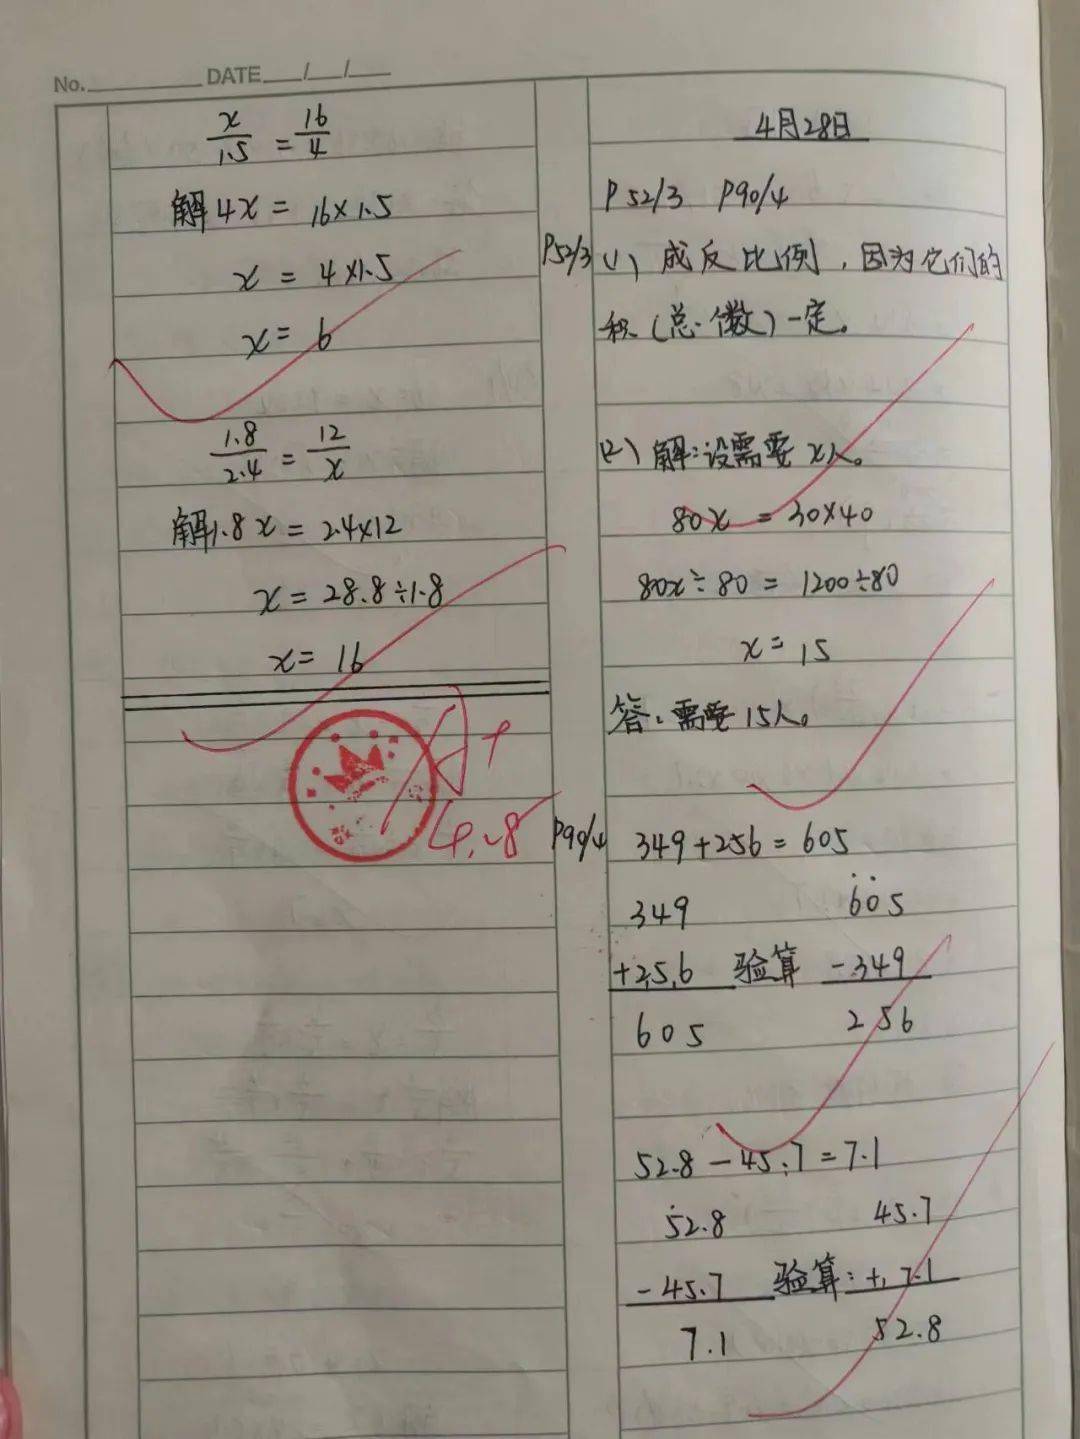 No. DATE / /
x/1.5 = 16/4
解4x = 16×1.5
x = 4×1.5
x = 6
1.8/2.4 = 12/x
解1.8x = 2.4×12
x = 28.8÷1.8
x = 16
4.28
4月28日
P52/3 P90/4
P52/3 (1) 成反比例，因为它们的
积(总个数)一定。
(2) 解:设需要x人。
80x = 30×40
80x÷80 = 1200÷80
x = 15
答:需要15人。
P90/4 349+256=605
349 605
+256 验算 -349
605 256
52.8-45.7=7.1
52.8 45.7
-45.7 验算: +7.1
7.1 52.8